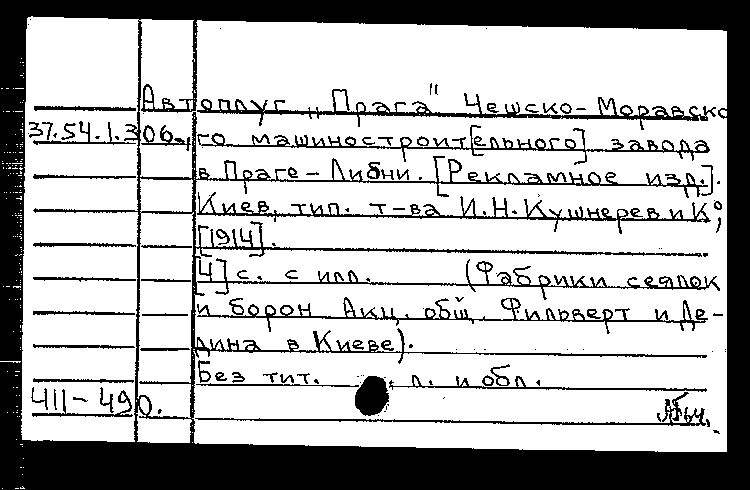 Автоплуг „Прага" Чешско-Моравско
37.54.1.306., го машиностроит[ельного] завода
в Праге-Либни. [Рекламное изд.].
Киев, тип. т-ва И.Н.Кушнерев и К°,
[1914].
[4] с. с илл. (Фабрики сеялок
и борон Акц. общ. Фильверт и Де-
дина в Киеве).
Без тит. л. и обл.
411-490.